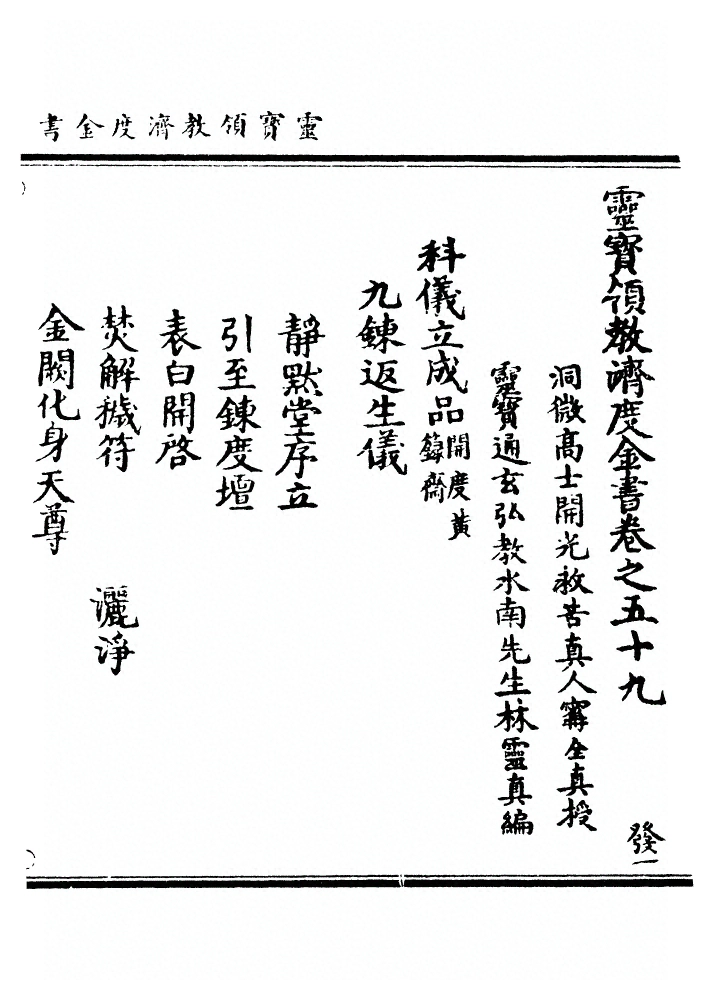 靈寶領教濟度金書
靈寶領教濟度金書卷之五十九
發一
洞微高士開光救苦真人寗全真授
靈寶通玄弘教水南先生林靈真編
科儀立成品開度黃籙齋
九鍊返生儀
靜默堂序立
引至鍊度壇
表白開啓
焚解穢符　灑淨
金闕化身天尊